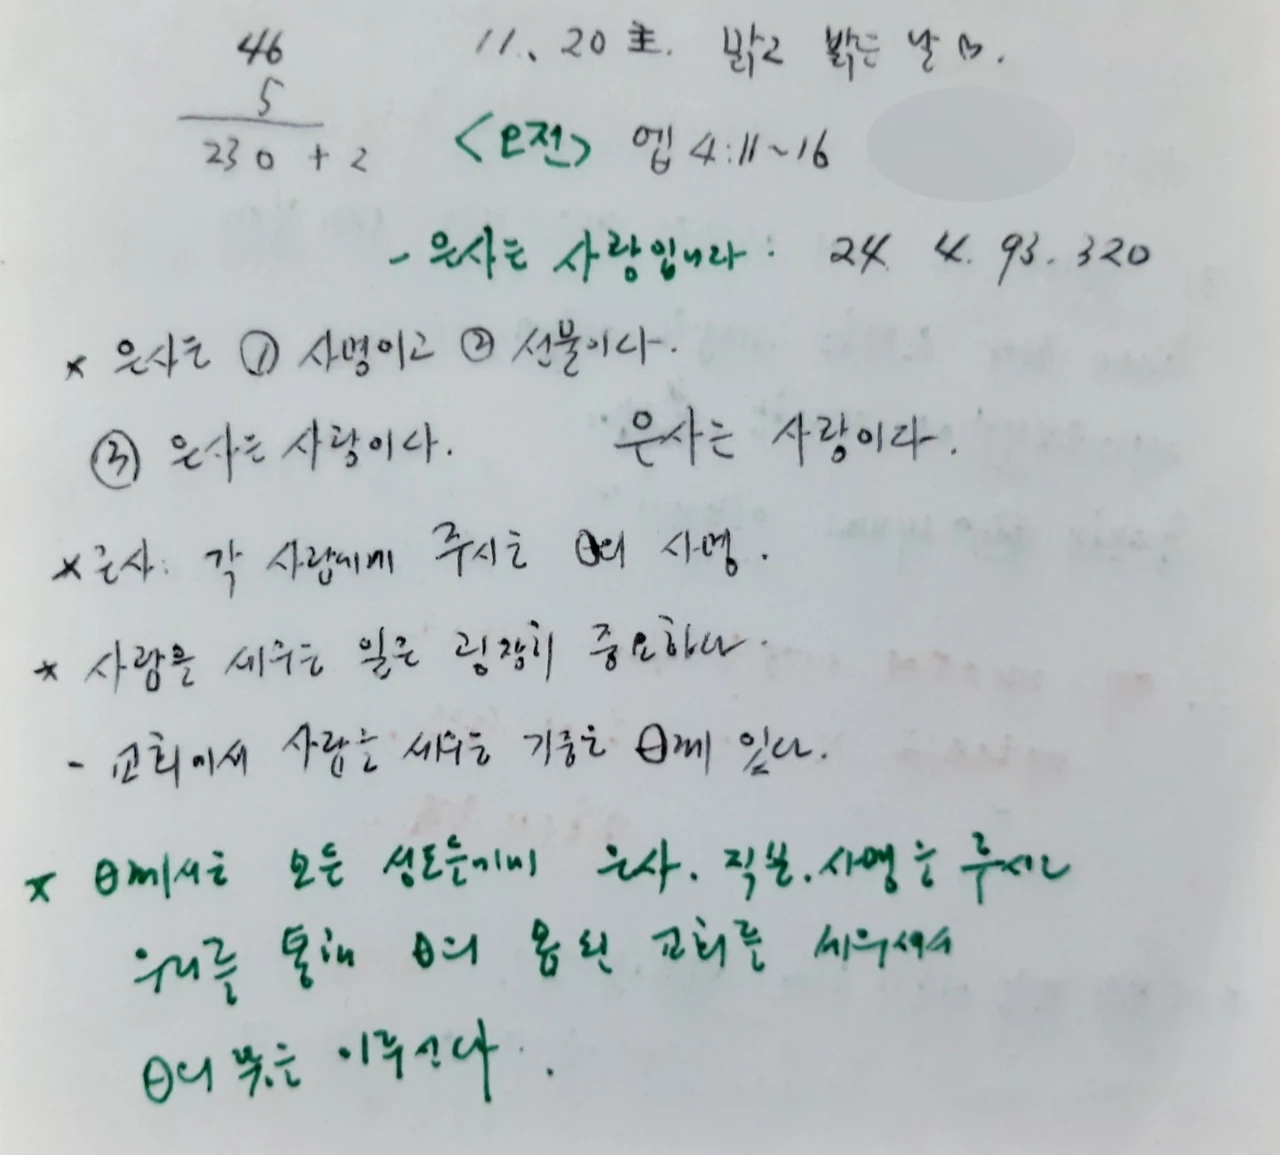 46
5
230 + 2
11、20 主. 맑고 밝은 날
<오전> 엡 4:11~16
- 은사는 사랑입니다 : 24. 4. 93. 320
* 은사는 ① 사명이고 ② 선물이다.
③ 은사는 사랑이다. 은사는 사랑이다.
* 은사: 각 사람에게 주시는 θ의 사명.
* 사람을 세우는 일은 굉장히 중요하다.
- 교회에서 사람을 세우는 기준은 θ께 있다.
* θ께서는 모든 성도들에게 은사. 직분. 사명을 주시고
우리를 통해 θ의 몸된 교회를 세우셔서
θ의 뜻을 이루신다.